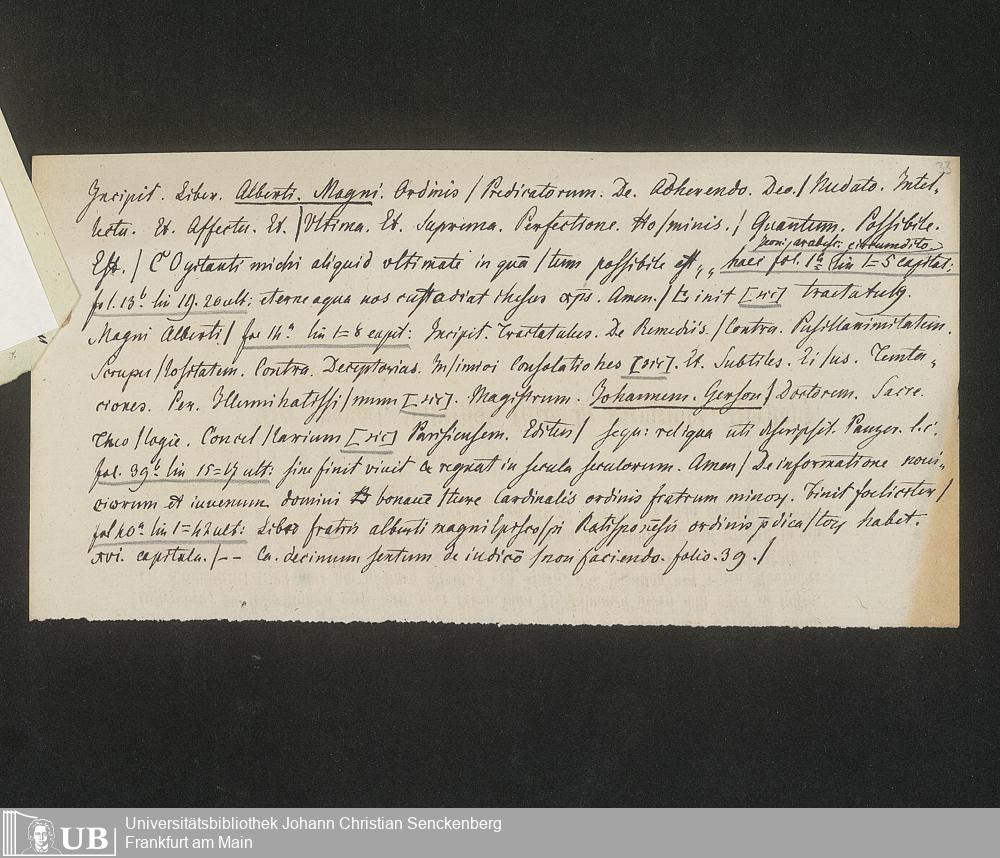 33
Incipit. Liber. Alberti. Magni. Ordinis / Predicatorum. De. Adherendo. Deo. / Nudato. Intel-
lectu. Et. Affectu. Et. / Ultima. Et. Suprema. Perfectione. Ho/minis. / Quantum. Possibile.
circumdito
Est. / COgitanti michi aliquid ultimate in quā / tum possibile est „ haec fol. 1b lin 1=5 capital:
fol. 13b. lin 19. 20 ult: eterne aqua nos custodiat ihesus xp̄s. Amen. / init [sic] tractatulꝰ.
Magni Alberti / fol 14a lin 1=8 capit: Incipit. Tractatulus. De Remediis. / Contra. Pusillanimitatem.
Scrupu / lositatem. Contra. Deceptorias. In/imici Consolationes [sic]. Et. Subtiles. Ei / us. Tenta-
ciones. Per. Illuminatissi / mum [sic]. Magistrum. Johannem. Gerson / Doctorem. Sacre.
Theo / logie. Concel / larium [sic] Parisiensem. Editus / sequ: reliqua uti descripsit. Panzer. l.c.
fol. 39b lin 15=17 ult: sine finit vivit & regnat in secula seculorum. Amen / De informatione noui-
ciorum et iuuenum domini bonaue / ture Cardinalis ordinis fratrum minoꝝ. finit foeliciter /
fol 40a lin 1=42 ult: Liber fratris alberti magni Episco / pi Ratisponēsis ordinis p̄dica / toꝝ habet.
xvi. capitula. / -- Ca. decimum sextum de iudicō / non faciendo. folio. 39. /
UB
Universitätsbibliothek Johann Christian Senckenberg
Frankfurt am Main